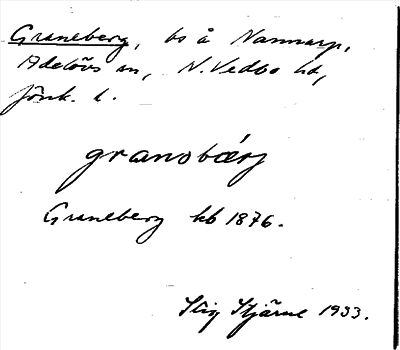 Graneberg, bs å Nannarp,
Adelövs sn, N. Vedbo hd,
Jönk. l.
granobærj
Graneberg hb 1876.
Stig Stjärne 1933.